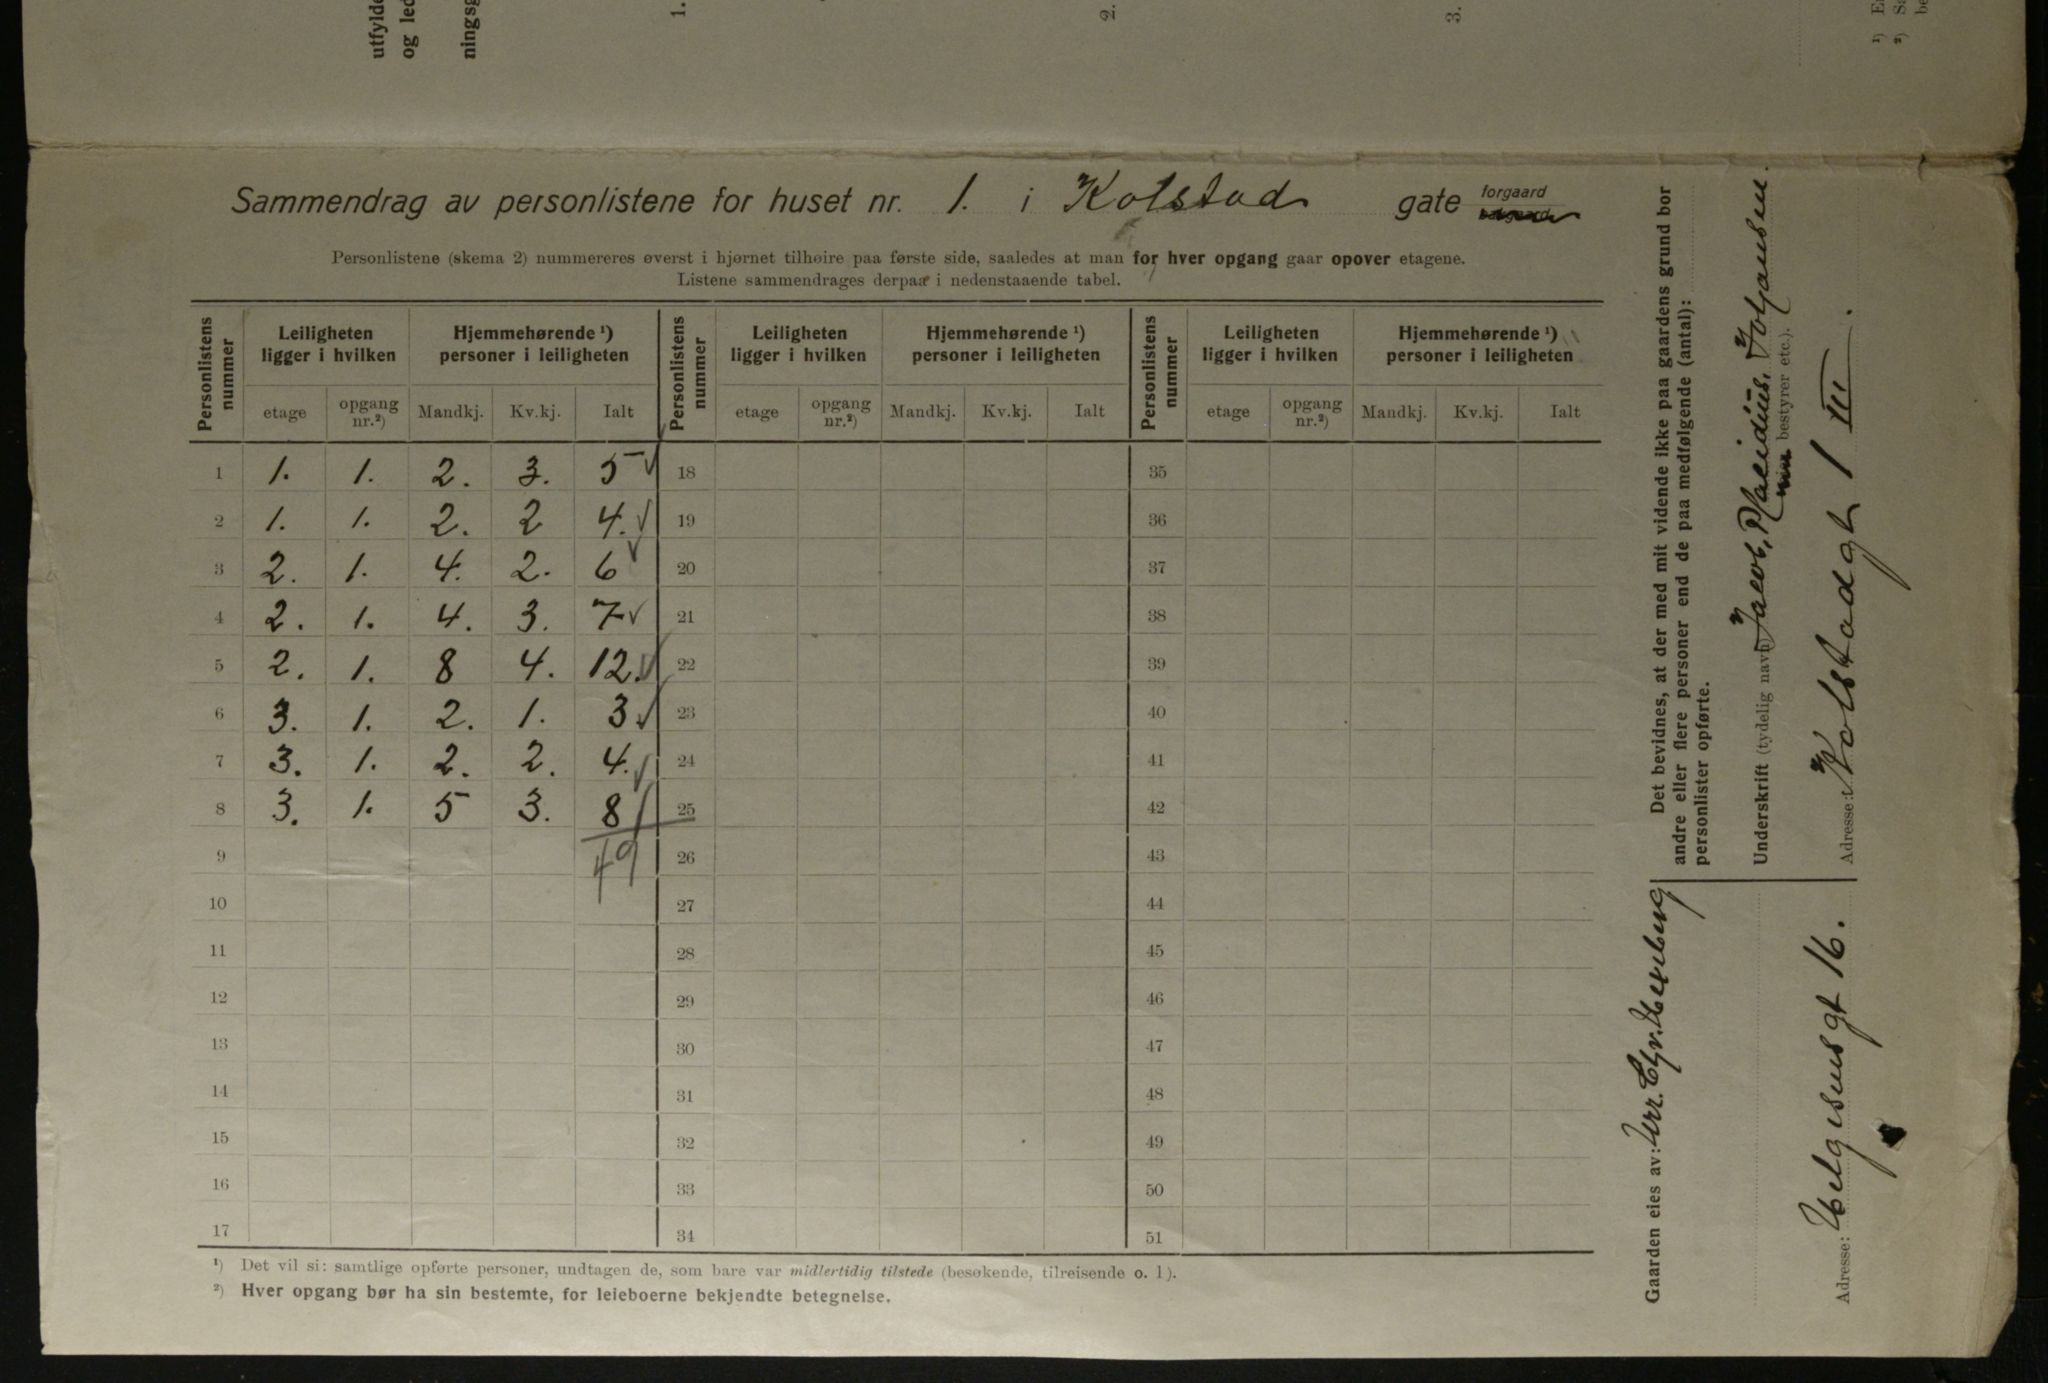 utfylde
og led
ningsg
1.
2.
3.
¹) E
²) Sa
be
Sammendrag av personlistene for huset nr. 1. i Kolstad gate forgaard
Personlistene (skema 2) nummereres øverst i hjørnet tilhøire paa første side, saaledes at man for hver opgang gaar opover etagene.
Listene sammendrages derpaa i nedenstaaende tabel.
Personlistens nummer | Leiligheten ligger i hvilken | Hjemmehørende ¹) personer i leiligheten | Personlistens nummer | Leiligheten ligger i hvilken | Hjemmehørende ¹) personer i leiligheten | Personlistens nummer | Leiligheten ligger i hvilken | Hjemmehørende ¹) personer i leiligheten
etage | opgang nr.²) | Mandkj. | Kv.kj. | Ialt | etage | opgang nr.²) | Mandkj. | Kv.kj. | Ialt | etage | opgang nr.²) | Mandkj. | Kv.kj. | Ialt
1 | 1. | 1. | 2. | 3. | 5 | 18 | 35
2 | 1. | 1. | 2. | 2 | 4. | 19 | 36
3 | 2. | 1. | 4. | 2. | 6 | 20 | 37
4 | 2. | 1. | 4. | 3. | 7 | 21 | 38
5 | 2. | 1. | 8 | 4. | 12. | 22 | 39
6 | 3. | 1. | 2. | 1. | 3 | 23 | 40
7 | 3. | 1. | 2. | 2. | 4. | 24 | 41
8 | 3. | 1. | 5 | 3. | 8 | 25 | 42
9 | 49 | 26 | 43
10 | 27 | 44
11 | 28 | 45
12 | 29 | 46
13 | 30 | 47
14 | 31 | 48
15 | 32 | 49
16 | 33 | 50
17 | 34 | 51
¹) Det vil si: samtlige opførte personer, undtagen de, som bare var midlertidig tilstede (besøkende, tilreisende o. l).
²) Hver opgang bør ha sin bestemte, for leieboerne bekjendte betegnelse.
Det bevidnes, at der med mit vidende ikke paa gaardens grund bor
andre eller flere personer end de paa medfølgende (antal):
personlister opførte.
Underskrift (tydelig navn) Jacob, Placidius, Johansen.
bestyrer etc.).
Adresse: Kolstadgt 1 III.
Gaarden eies av: Herr. Chr. Herberg
Adresse: Helgesensgt 16.